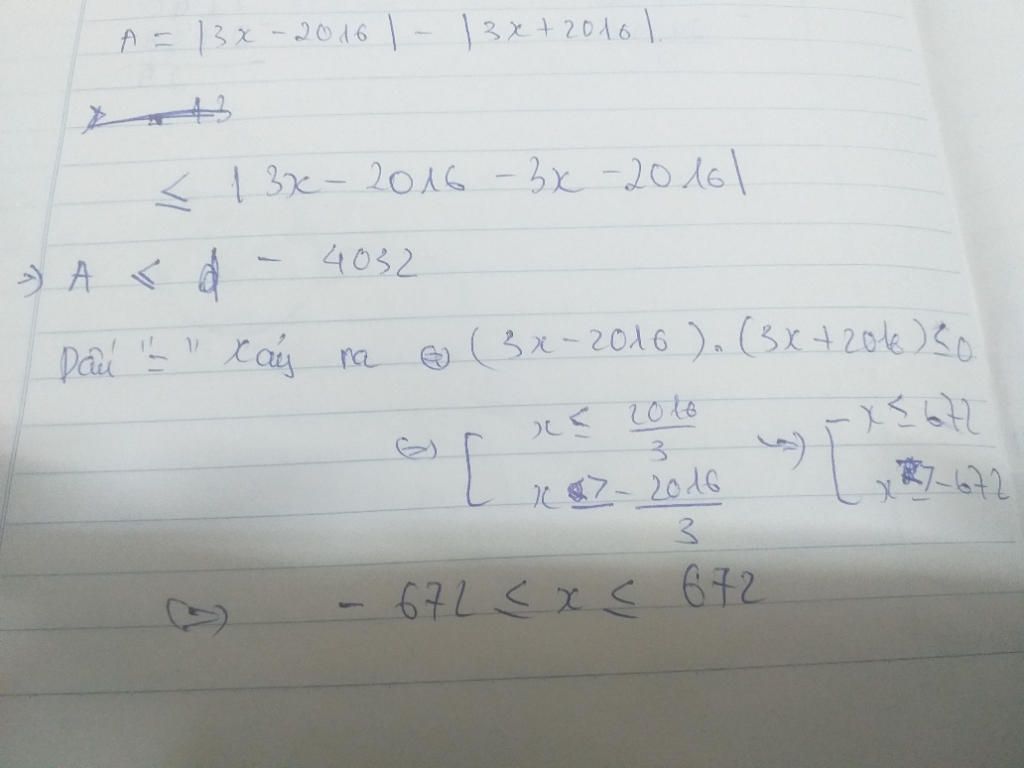 A = |3x - 2016| - |3x + 2016|.
≤ | 3x - 2016 - 3x - 2016|
=) A ≤ - 4032
Dấu "=" xảy ra (=) (3x - 2016).(3x + 2016) ≤ 0
(=) [ x ≤ 2016/3 =) [ - x ≤ 672
x ≥ - 2016/3 x ≥ - 672
(=) - 672 ≤ x ≤ 672